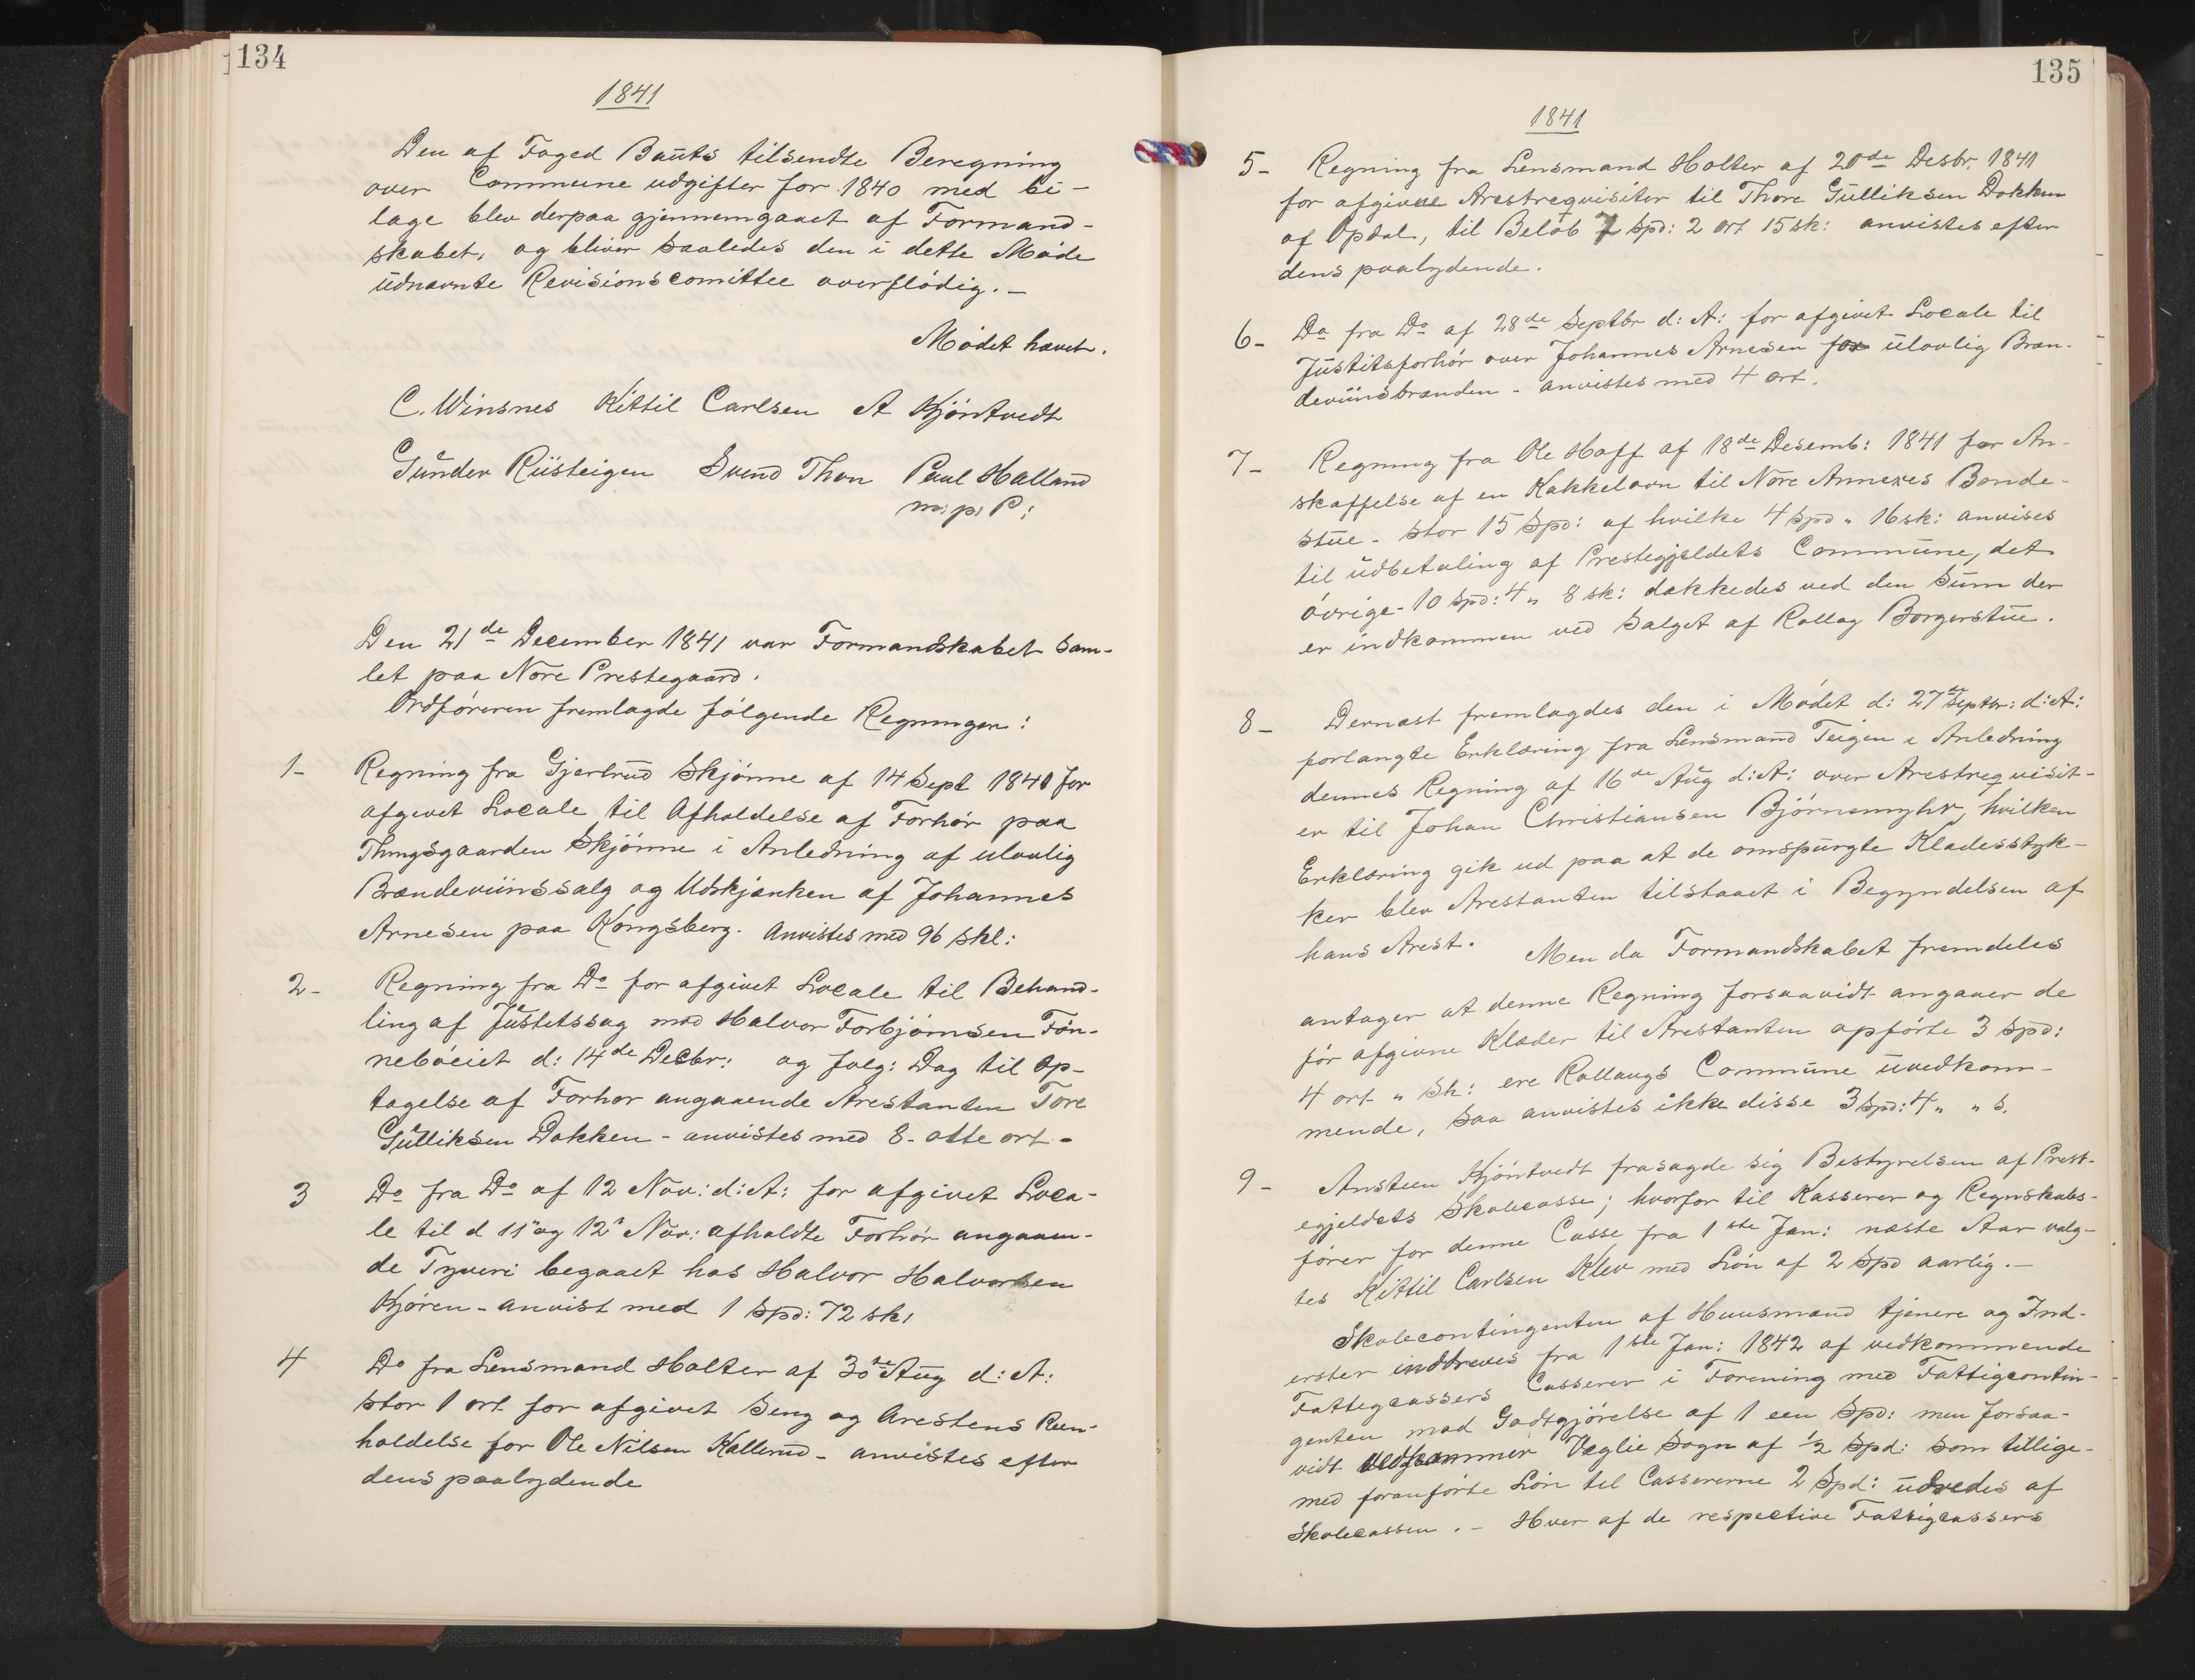 134
1841
Den af Foged Baüts tilsendte Beregning
over Commune udgifter for 1840 med bi-
lage blev derpaa gjennemgaaet af Formand-
skabet, og bliver saaledes den i dette Møde
üdnævnte Revisionscomittee overflødig. -
Mødet hævet.
C. Winsnes Kittil Carlsen A Kjøntvedt
Günder Riisteigen Svend Thon Paul Halland
m: p: P:
Den 21de December 1841 var Formandskabet sam-
let paa Nore Prestegaard.
Ordføreren fremlagde følgende Regninger:
1- Regning fra Gjertrud Skjønne af 14 Sept 1841 for
afgivet Locale til Afholdelse af Forhør paa
Thingsgaarden Skjønne i Anledning af ulovlig
Brændeviinssalg og Udskjænken af Johannes
Arnesen paa Kongsberg. Anvistes med 96 skl:
2- Regning fra Do for afgivet Locale til Behand-
ling af Jüstitssag mod Halvor Torbjørnsen Føn-
nebøeiet d: 14de Decbr: og følg: Dag til Op-
tagelse af Forhør angaaende Arestanten Tore
Gülliksen Dokken - anvistes med 8- otte ort -
3 Do fra Do af 12 Nov: d: A: for afgivet Loca-
le til d 11te og 12te Nov: afholdte Forhør angaaen-
de Tyveri begaaet hos Halvor Halvorsen
Kjøren - anvist med 1 Spd: 72 sk:
4 Do fra Lensmand Holter af 30te Aüg d: A:
stor 1 ort for afgivet Seng og Arestens Reen-
holdelse for Ole Nilsen Kallerud - anvistes efter
dens paalydende
135
1841
5- Regning fra Lensmand Holter af 20de Desbr. 1841
for afgivne Arestreqvisiter til Thore Gülliksen Dokken
af Opdal, til Beløb 7 Spd: 2 ort 15 sk: anvistes efter
dens paalydende.
6- Do fra Do af 28de Septbr d: A: for afgivet Locale til
Jüstitsforhør over Johannes Arnesen for ülovlig Bræn-
deviinsbrænden - anvistes med 4 ort.
7- Regning fra Ole Hoff af 18de Desemb: 1841 for An-
skaffelse af en Kakkelovn til Nore Annexes Bonde-
stüe - stor 15 Spd: af hvilke 4 Spd „ 16 sk: anvises
til üdbetaling af Prestegjeldets Commüne, det
øvrige - 10 Spd: 4 „ 8 sk: dækkedes ved den Süm der
er indkommen ved Salget af Rollag Borgerstüe.
8- Dernæst fremlagdes den i Mødet d: 27de Septbr: d: A:
forlangte Erklæring fra Lensmand Teigen i Anledning
dennes Regning af 16de Aüg d: A: over Arestreqvisit-
er til Johan Christiansen Bjørnemyhr, hvilken
Erklæring gik ud paa at de omspurgte Klædesstyk-
ker blev Arestanten tilstaaet i Begyndelsen af
hans Arest. Men da Formandskabet fremdeles
antager at denne Regning forsaavidt angaaer de
før afgivne Klæder til Arestanten opførte 3 Spd:
4 ort „ Sk: ere Rollaugs Commüne üvedkom-
mende, saa anvistes ikke disse 3 Spd: 4 „ „ S.
9- Ansteen Kjøntvedt frasagde sig Bestyrelsen af Prest-
egjeldets Skolecasse; hvorfor til Kasserer og Regnskabs-
fører for denne Casse fra 1ste Jan: næste Aar valg-
tes Kittil Carlsen Klev med Løn af 2 Spd aarlig. -
Skolecontingenten af Huusmænd tjenere og Ind-
erster inddreves fra 1ste Jan: 1842 af vedkommende
Fattigcassers Casserer i Forening med Fattigcontin-
genten mod Godtgjørelse af 1 een Spd: men forsaa-
vidt vedkommer Væglie Sogn af 1/2 Spd: som tillige-
med foranførte Løn til Cassererne 2 Spd: üdredes af
Skolecassen. - Hver af de respective Fattigcassers